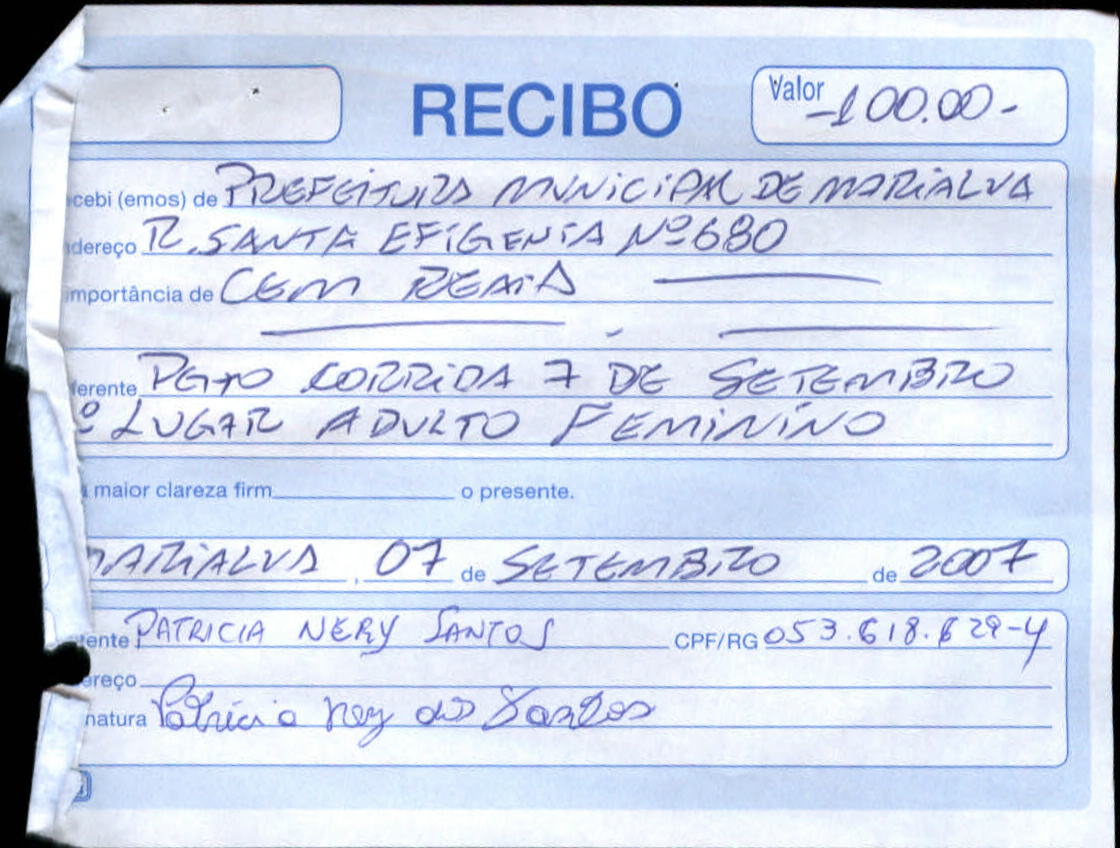 RECIBO
Valor -100.00-
cebi (emos) de PREFEITURA MUNICIPAL DE MARIALVA
dereço R. SANTA EFIGENIA Nº 680
mportância de CEM REAIS
ferente PGTO CORRIDA 7 DE SETEMBRO
º LUGAR ADULTO FEMININO
maior clareza firm o presente.
MARIALVA, 07 de SETEMBRO de 2007
tente PATRICIA NERY SANTOS CPF/RG 053.618.629-4
ereço
natura Patricia Nery dos Santos